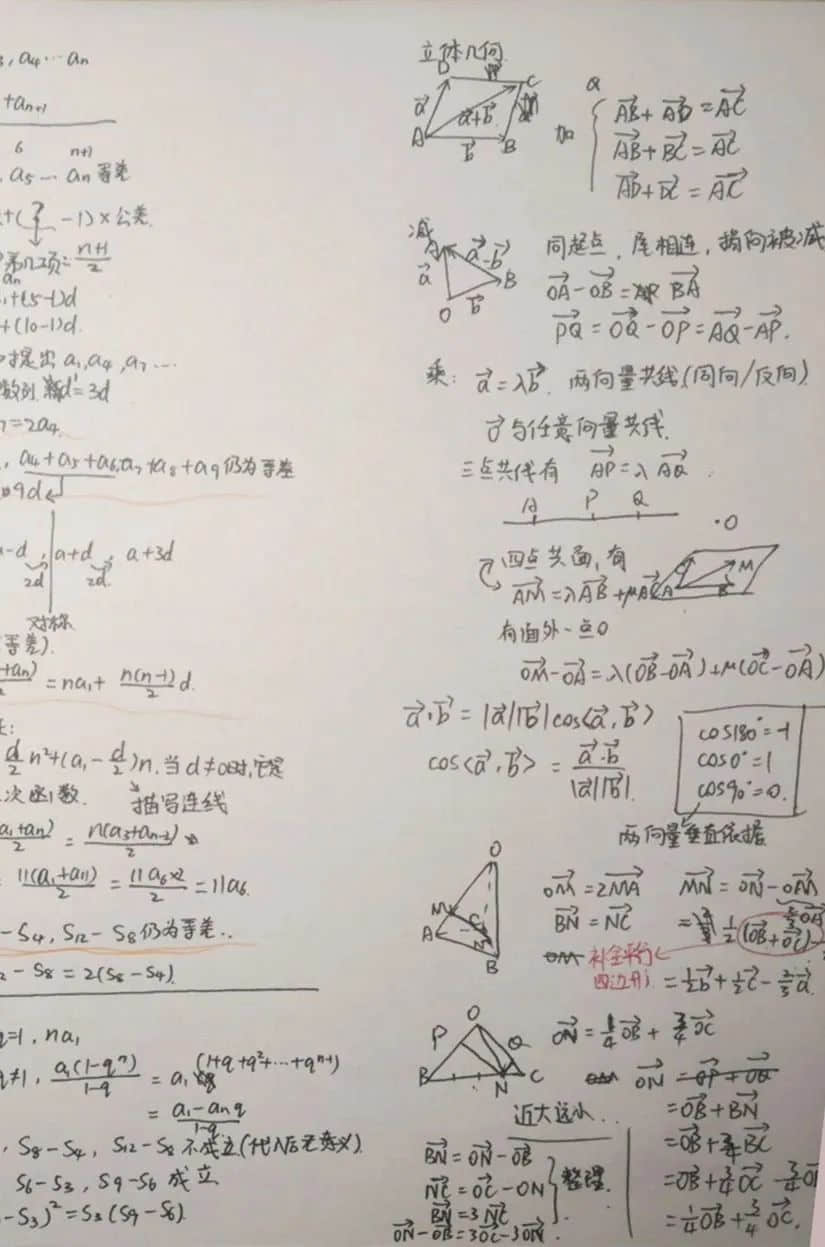 , a₄ … aₙ
+aₙ₊₁
6 n+1
, a₅ … aₙ 等差
+( ? -1)×公差.
第几项=\frac{n+1}{2}
aₙ
+(5-1)d
+(10-1)d.
提出 a₁, a₄, a₇ …
数列 新d'=3d
=2a₄.
, a₄+a₅+a₆, a₇+a₈+a₉ 仍为等差
9d
-d, a+d, a+3d
2d 2d
对称
等差).
+aₙ) = na₁ + \frac{n(n-1)}{2}d.
\frac{d}{2}n²+(a₁-\frac{d}{2})n. 当d≠0时,它是
次函数. 描写连线
\frac{a₁+aₙ)}{2} = \frac{n(a₃+aₙ₋₂)}{2}
\frac{11(a₁+a₁₁)}{2} = \frac{11a₆×2}{2} = 11a₆.
-S₄, S₁₂-S₈仍为等差..
-S₈=2(S₈-S₄).
q=1, na₁
q≠1, \frac{a₁(1-qⁿ)}{1-q} = a₁ (1+q+q²+…+qⁿ⁺¹)
= \frac{a₁-aₙq}{1-q}
, S₈-S₄, S₁₂-S₈ 不成立
S₆-S₃, S₉-S₆ 成立
-S₃)²=S₃(S₉-S₆).
立体几何.
D C
a⃗ a⃗+b⃗
A b⃗ B
加
AB⃗+AD⃗=AC⃗
AB⃗+BC⃗=AC⃗
AD⃗+DC⃗=AC⃗
减 同起点, 尾相连, 指向被减
A a⃗-b⃗
a⃗ B
O b⃗
OA⃗-OB⃗= BA⃗
PQ⃗=OQ⃗-OP⃗=AQ⃗-AP⃗.
乘: a⃗=λb⃗. 两向量共线(同向/反向)
0⃗与任意向量共线.
三点共线有 AP⃗=λAQ⃗.
A P Q
·O
四点共面, 有
AM⃗=λAB⃗+μAC⃗
A B M
有面外一点O
OM⃗-OA⃗=λ(OB⃗-OA⃗)+μ(OC⃗-OA⃗)
a⃗·b⃗=|a⃗||b⃗|cos<a⃗,b⃗>
cos<a⃗,b⃗> = \frac{a⃗·b⃗}{|a⃗||b⃗|}.
cos180°=-1
cos0°=1
cos90°=0.
两向量垂直依据
O
M C
A
B
OM⃗=2MA⃗ MN⃗=ON⃗-OM⃗
BN⃗=NC⃗ = \frac{1}{2}(OB⃗+OC⃗)- \frac{2}{3}OA⃗
补全平行
四边形 = \frac{1}{2}b⃗+\frac{1}{2}c⃗-\frac{2}{3}a⃗.
O
P Q
B N C
ON⃗=\frac{1}{4}OB⃗+\frac{3}{4}OC⃗
ON⃗=OP⃗+OQ⃗
近大远小.. =OB⃗+BN⃗
BN⃗=ON⃗-OB⃗ =OB⃗+\frac{3}{4}BC⃗
NC⃗=OC⃗-ON 整理. =OB⃗+\frac{3}{4}OC⃗-\frac{3}{4}O
BN⃗=3NC⃗
ON⃗-OB⃗=3OC⃗-3ON⃗. =\frac{1}{4}OB⃗+\frac{3}{4}OC⃗.